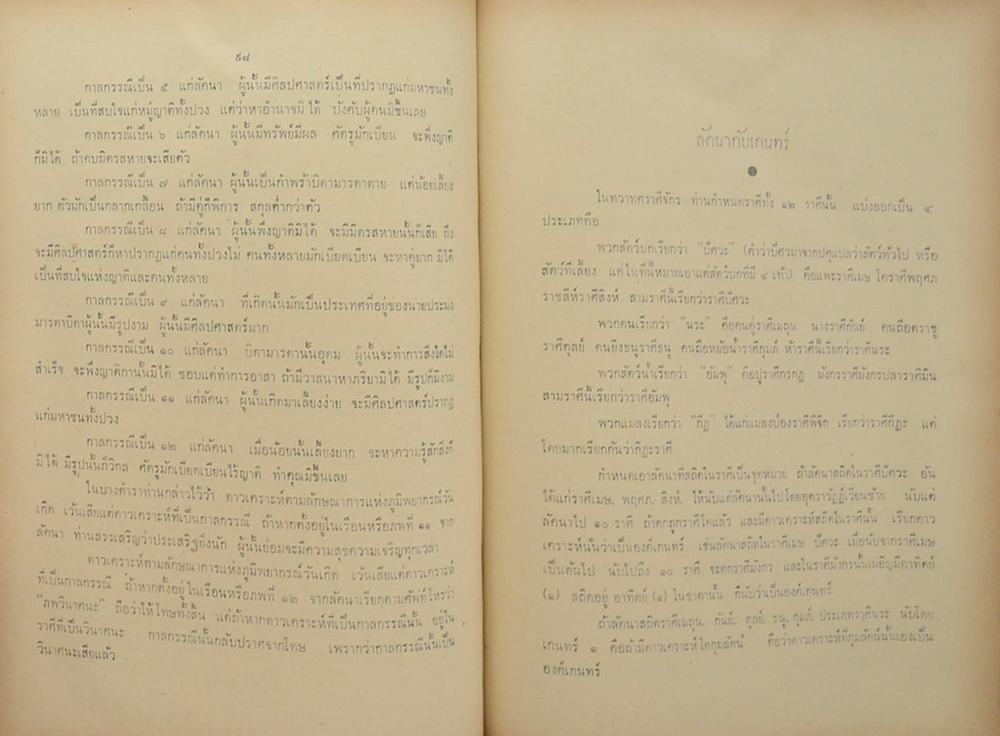 ๙๘
กาลกรรณีเป็น ๕ แก่ลัคนา ผู้นั้นมีศิลปศาสตร์เป็นที่ปรากฏแก่มหาชนทั้ง
หลาย เป็นที่สบใจแก่หมู่ญาติทั้งปวง แต่ว่าหาอำนาจมิได้ บังคับผู้คนมิขึ้นเลย
กาลกรรณีเป็น ๖ แก่ลัคนา ผู้นั้นมีทรัพย์มีผล ศัตรูมักเบียน จะพึ่งญาติ
ก็มิได้ ถ้าคบมิตรสหายจะเสียตัว
กาลกรรณีเป็น ๗ แก่ลัคนา ผู้นั้นเป็นกำพร้าบิดามารดาตาย แต่น้อยเลี้ยง
ยาก ตัวมักเป็นกลากเกลื้อน ถ้ามีคู่ก็พิการ สกุลต่ำกว่าตัว
กาลกรรณีเป็น ๘ แก่ลัคนา ผู้นั้นพึ่งญาติมิได้ จะมีมิตรสหายนั้นก็เสีย ถึง
จะมีศิลปศาสตร์ก็หาปรากฏแก่คนทั้งปวงไม่ คนทั้งหลายมักเบียดเบียน จะหาคู่ยาก มิได้
เป็นที่สบใจแห่งญาติและคนทั้งหลาย
กาลกรรณีเป็น ๙ แก่ลัคนา ที่เกิดนั้นมักเป็นประเทศที่อยู่ของนายประมง
มารดาบิดาผู้นั้นมีรูปงาม ผู้นั้นมีศิลปศาสตร์มาก
กาลกรรณีเป็น ๑๐ แก่ลัคนา บิดามารดานั้นอุดม ผู้นั้นจะทำการสิ่งใดไม่
สำเร็จ จะพึ่งญาติกานั้นมิได้ ชอบแต่ทำการอาสา ถ้ามีวาสนาหาภริยามิได้ มีรูปก็มิงาม
กาลกรรณีเป็น ๑๑ แก่ลัคนา ผู้นั้นเกิดมาเลี้ยงง่าย จะมีศิลปศาสตร์ปรากฏ
แก่มหาชนทั้งปวง
กาลกรรณีเป็น ๑๒ แก่ลัคนา เมื่อน้อยนั้นเลี้ยงยาก จะหาความรู้สักสิ่งก็
มิได้ มีรูปนั้นก็วิกล ศัตรูมักเบียดเบียนไร้ญาติ ทำคุณมิขึ้นเลย
ในบางตำราท่านกล่าวไว้ว่า ดาวเคราะห์ตามลักษณาการแห่งภูมิพยากรณ์วัน
เกิด เว้นเสียแต่ดาวเคราะห์ที่เป็นกาลกรรณี ถ้าหากตั้งอยู่ในเรือนหรือภพที่ ๑๑ จาก
ลัคนา ท่านสรรเสริญว่าประเสริฐยิ่งนัก ผู้นั้นย่อมจะมีความสุขความเจริญทุกเวลา
ดาวเคราะห์ตามลักษณาการแห่งภูมิพยากรณ์วันเกิด เว้นเสียแต่ดาวเคราะห์
ที่เป็นกาลกรรณี ถ้าหากตั้งอยู่ในเรือนหรือภพที่ ๑๒ จากลัคนาเรียกตามศัพท์โหรว่า
"ภพวินาศนะ" ถือว่าให้โทษทั้งสิ้น แต่ถ้าหากดาวเคราะห์ที่เป็นกาลกรรณีนั้น อยู่ใน
ราศีที่เป็นวินาศนะ กาลกรรณีนั้นกลับปราศจากโทษ เพราะว่ากาลกรรณีนั้นเป็น
วินาศนะเสียแล้ว
ลัคนากับเกนทร์
ในทวาทศราศีจักร ท่านกำหนดราศีทั้ง ๑๒ ราศีนั้น แบ่งออกเป็น ๔
ประเภทคือ
พวกสัตว์บกเรียกว่า "ปัศวะ" (คำว่าปัศวมาจากปศุแปลว่าสัตว์ทั่วไป หรือ
สัตว์ที่เลี้ยง แต่ในที่นี้หมายเอาแต่สัตว์บกที่มี ๔ เท้า) คือแพะราศีเมษ โคราศีพฤศภ
ราชสีห์ราศีสิงห์ สามราศีนี้เรียกว่าราศีปัศวะ
พวกคนเรียกว่า "นระ" คือคนคู่ราศีเมถุน นางราศีกันย์ คนถือตราชู
ราศีตุลย์ คนยิงธนูราศีธนู คนถือหม้อน้ำราศีกุมภ์ ห้าราศีนี้เรียกว่าราศีนระ
พวกสัตว์น้ำเรียกว่า "อัมพุ" คือปูราศีกรกฎ มังกรราศีมังกรปลาราศีมิน
สามราศีนี้เรียกว่าราศีอัมพุ
พวกแมลงเรียกว่า "กีฏ" ได้แก่แมลงป่องราศีพิจิก เรียกว่าราศีกีฏะ แต่
โดยมากเรียกกันว่ากิฏะราศี
กำหนดเอาลัคนาที่สถิตในราศีเป็นจุดหมาย ถ้าลัคนาสถิตในราศีปัศวะ อัน
ได้แก่ราศีเมษ, พฤศภ, สิงห์, ให้นับแต่ลัคนานั้นไปโดยอุตราวัฏฏ์เวียนซ้าย นับแต่
ลัคนาไป ๑๐ ราศี ถ้าตกถูกราศีใดแล้ว และมีดาวเคราะห์สถิตในราศีนั้น เรียกดาว
เคราะห์นั้นว่าเป็นองค์เกนทร์ เช่นลัคนาสถิตในราศีเมษ ปัศวะ เมื่อนับจากราศีเมษ
เป็นต้นไป นับไปถึง ๑๐ ราศี จะตกราศีมังกร และในราศีมังกรนั้นเผอิญมีอาทิตย์
(๑) สถิตอยู่ อาทิตย์ (๑) ในชาตานั้น ก็นับว่าเป็นองค์เกนทร์
ถ้าลัคนาสถิตราศีเมถุน, กันย์, ตุลย์, ธนู, กุมภ์, ประเภทราศีนระ นับโดย
เกนทร์ ๑ คือถ้ามีดาวเคราะห์ใดกุมลัคน์ คือว่าดาวเคราะห์ที่กุมลัคน์นั้นเองเป็น
องค์เกนทร์